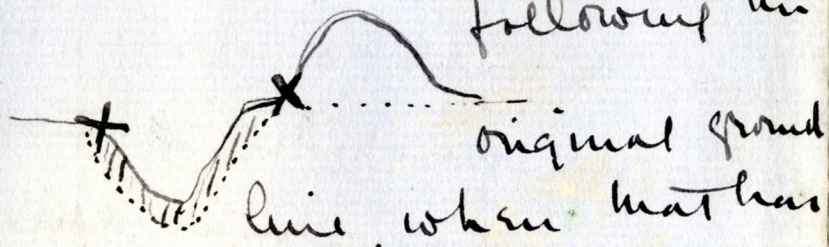 following the
original ground
line when that has